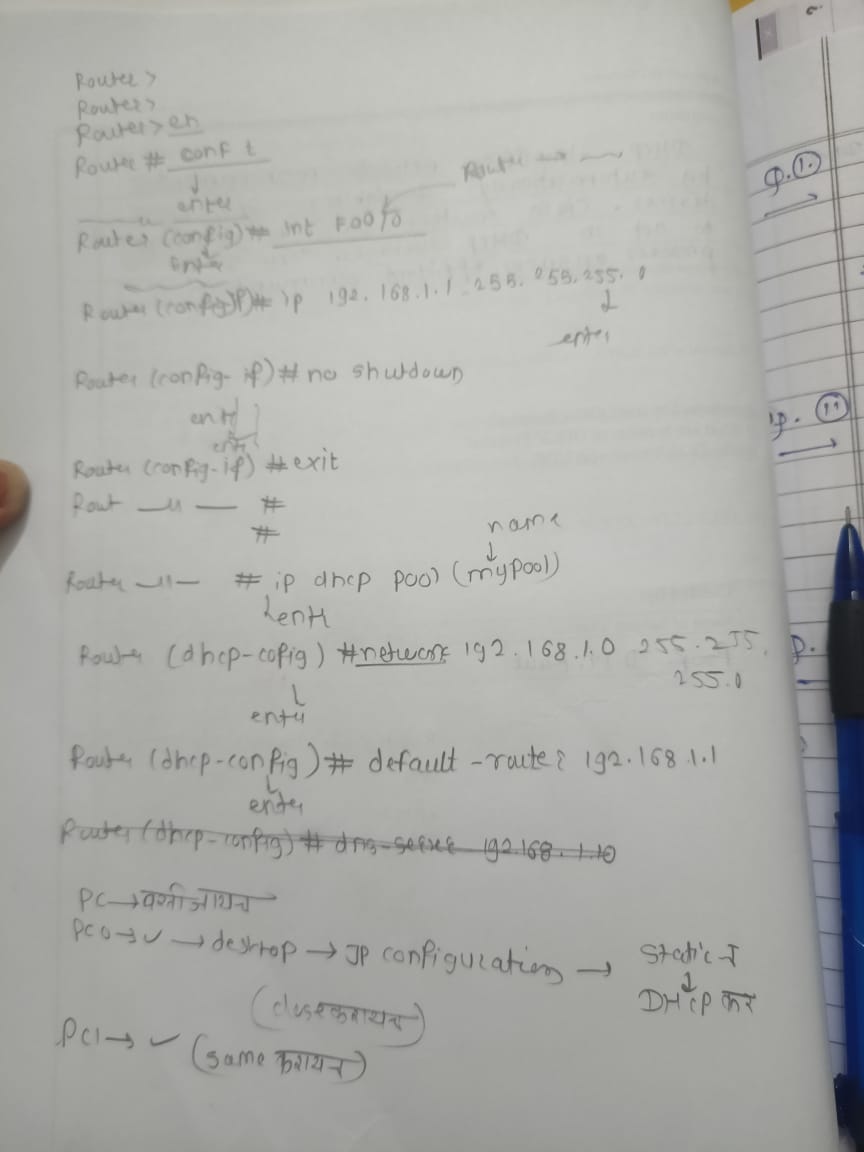 Router >
Router >
Router > en
Router # conf t
↓
enter
Router
Router (config) # int Fa0/0
Enter
Router (config-if) # ip 192.168.1.1 255.255.255.0
↓
enter
Router (config-if) # no shutdown
Router (config-if) # exit
Rout —〃— #
#
name
↓
Router —〃— # ip dhcp pool (mypool)
Router (dhcp-cofig) # network 192.168.1.0 255.255.
255.0
Router (dhcp-config) # default-router 192.168.1.1
↓
enter
Router (dhcp-config) # dns-server 192.168.1.10
PC → वरती जायच
PC0 → ✓ → desktop → IP configuration → Static त
↓
DHCP कर
(close करायच)
PC1 → ✓ (same करायच)
P.①.
→
p. ⑪
→
P.